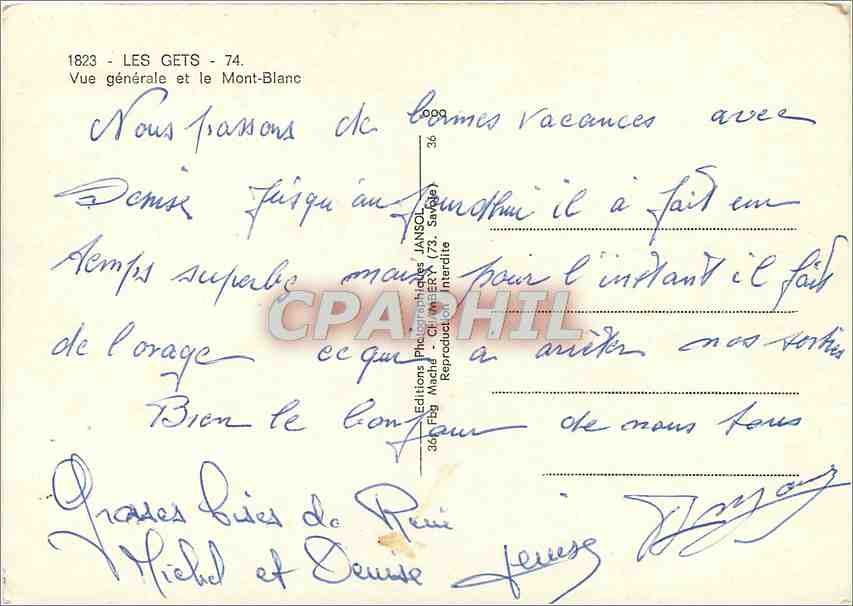 1823 - LES GETS - 74.
Vue générale et le Mont-Blanc
Nous passons de bonnes vacances avec
Denise jusqu'au jourdhui il a fait un
temps superbe mais pour l'instant il fait
de l'orage ce qui a arrêter nos sorties
Bien le bonjour de nous tous
Grosses bises de René
Michel et Denise Denise
Editions Photographiques JANSOL
36, Fbg Maché - CHAMBÉRY (73. Savoie) 36
Reproduction Interdite
CPAPHIL